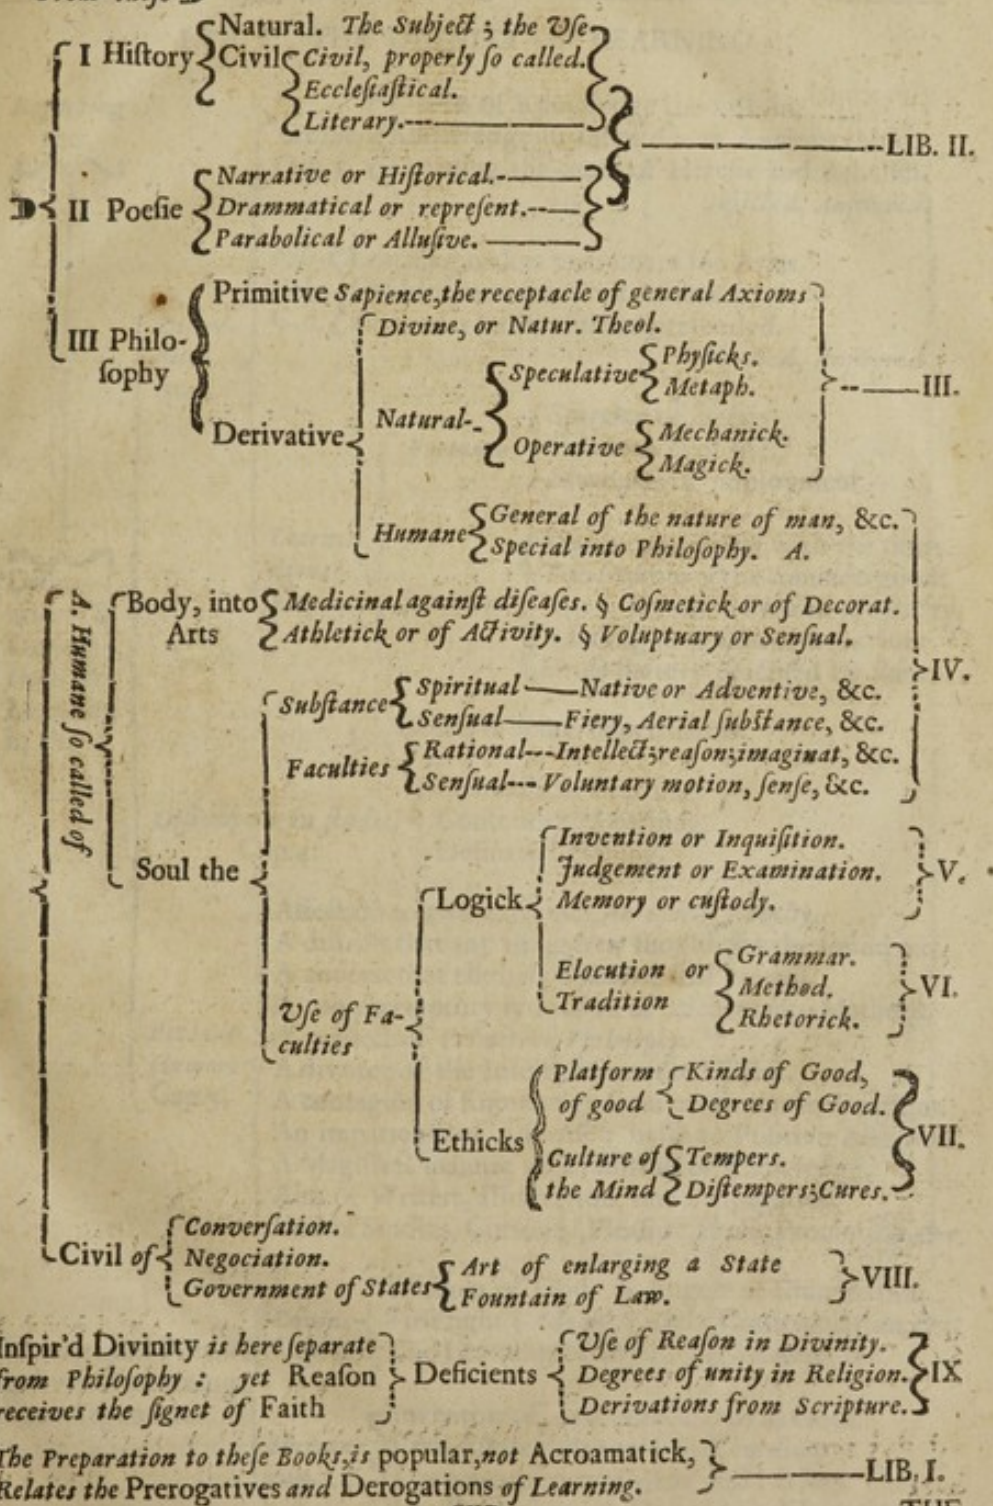 I Hiſtory
Natural. The Subject; the Uſe
Civil
Civil, properly ſo called.
Eccleſiaſtical.
Literary.
LIB. II.
II Poeſie
Narrative or Hiſtorical.
Drammatical or repreſent.
Parabolical or Alluſive.
III Philo-
ſophy
Primitive Sapience, the receptacle of general Axioms
Derivative
Divine, or Natur. Theol.
Natural
Speculative
Phyſicks.
Metaph.
Operative
Mechanick.
Magick.
III.
Humane
General of the nature of man, &c.
Special into Philoſophy. A.
A. Humane ſo called of
Body, into
Arts
Medicinal againſt diſeaſes. § Coſmetick or of Decorat.
Athletick or of Activity. § Voluptuary or Senſual.
IV.
Soul the
Subſtance
Spiritual — Native or Adventive, &c.
Senſual — Fiery, Aerial ſubſtance, &c.
Faculties
Rational --- Intellect; reaſon; imaginat, &c.
Senſual --- Voluntary motion, ſenſe, &c.
Uſe of Fa-
culties
Logick
Invention or Inquiſition.
Judgement or Examination.
Memory or cuſtody.
V.
Elocution or
Tradition
Grammar.
Method.
Rhetorick.
VI.
Ethicks
Platform
of good
Kinds of Good,
Degrees of Good.
Culture of
the Mind
Tempers.
Diſtempers; Cures.
VII.
Civil of
Converſation.
Negociation.
Government of States
Art of enlarging a State
Fountain of Law.
VIII.
Inſpir'd Divinity is here ſeparate
from Philoſophy : yet Reaſon
receives the ſignet of Faith
Deficients
Uſe of Reaſon in Divinity.
Degrees of unity in Religion.
Derivations from Scripture.
IX
The Preparation to theſe Books, is popular, not Acroamatick,
Relates the Prerogatives and Derogations of Learning.
LIB. I.